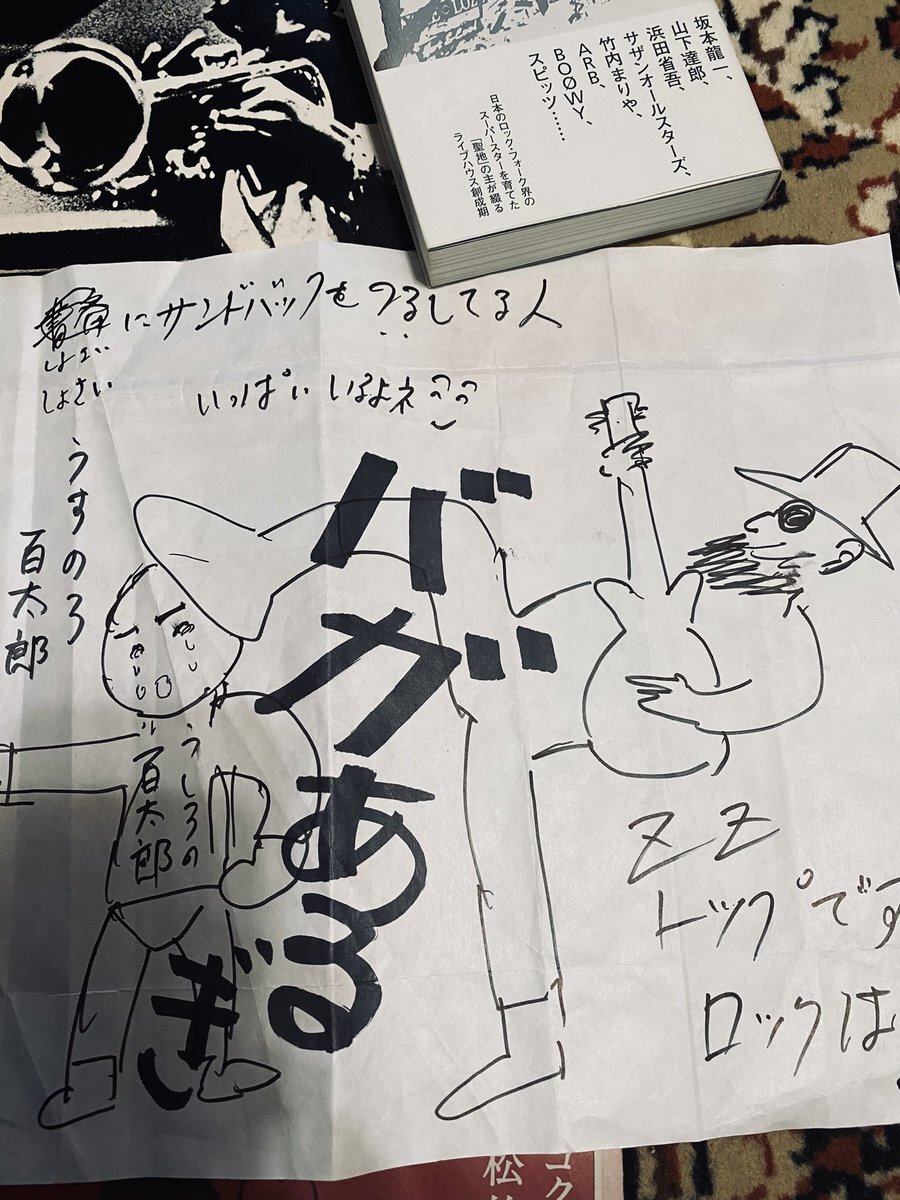 坂本龍一、
山下達郎、
浜田省吾、
サザンオールスターズ、
竹内まりや、
ARB、
BOØWY、
スピッツ……
日本のロック・フォーク界の
スーパースターを育てた
「聖地」の主が綴る
ライブハウス創成期
にサンドバックをつるしてる人
しょさい
いっぱい いるよネ
うすのろ
百太郎
バカ
ある
ぎ
うしろの
百太郎
ZZ
トップです
ロックは
コク
松